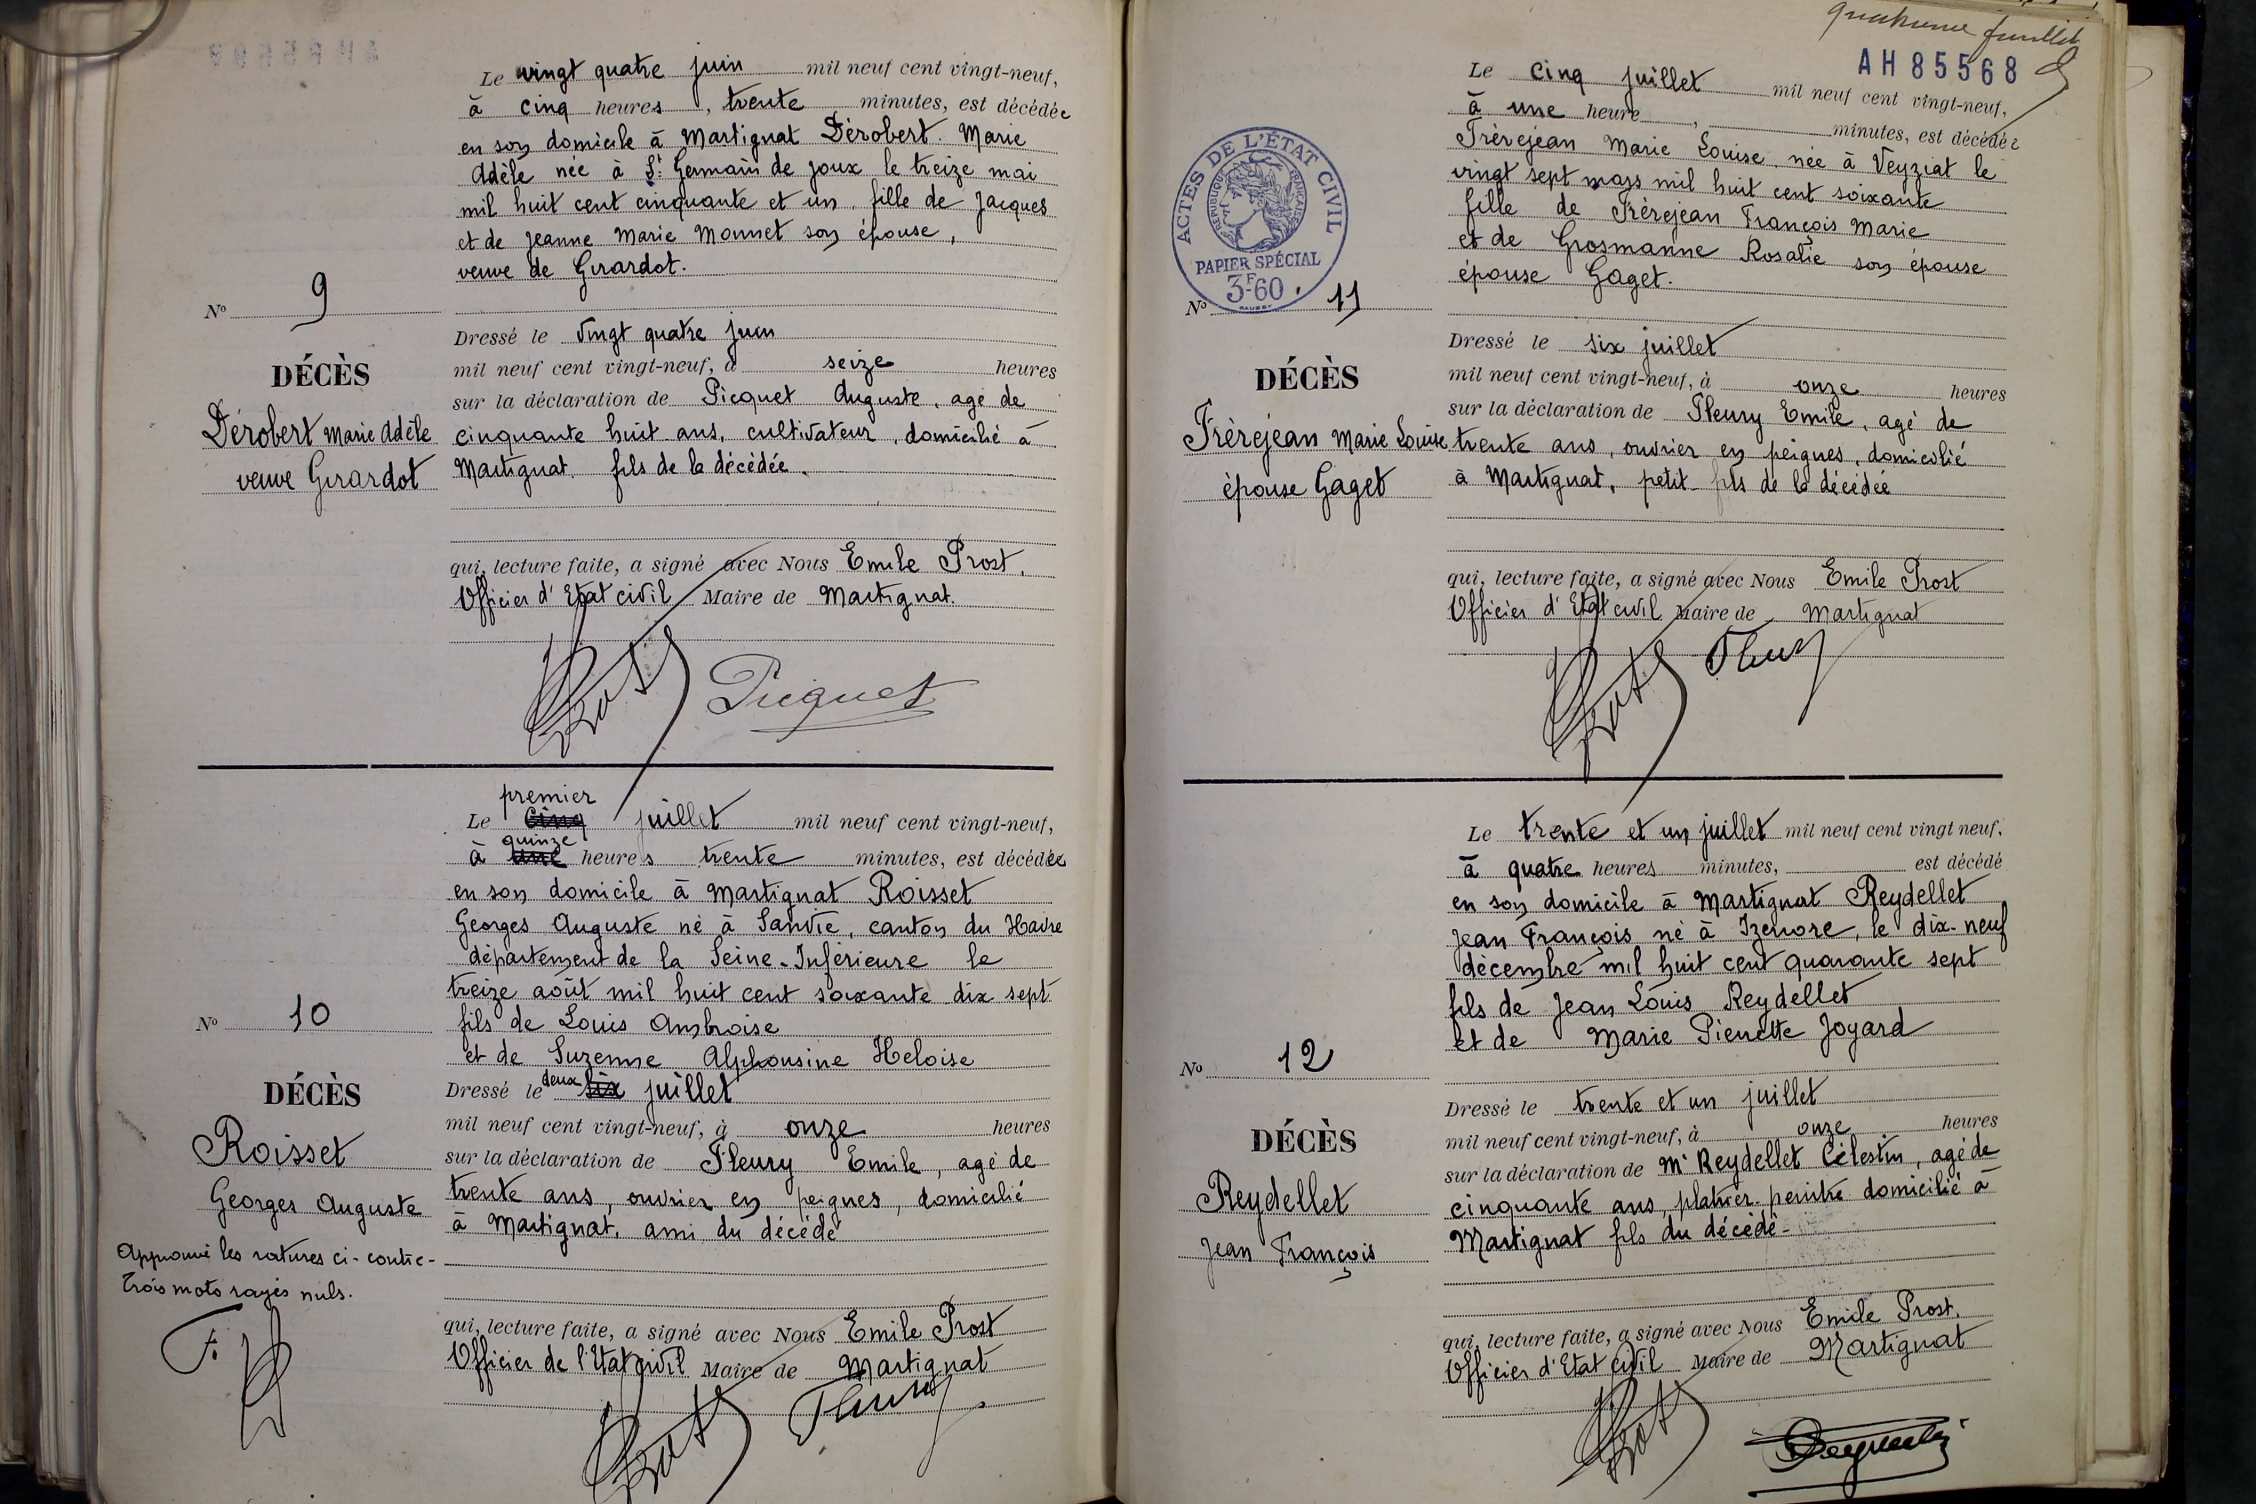 Le vingt quatre juin mil neuf cent vingt-neuf,
à cinq heures, trente minutes, est décédée
en son domicile à Martignat Dérobert Marie
Adèle née à St Germain de Joux le treize mai
mil huit cent cinquante et un, fille de Jacques
et de Jeanne Marie Monnet son épouse,
veuve de Girardot.
No 9
Dressé le vingt quatre juin
mil neuf cent vingt-neuf, à seize heures
DÉCÈS
sur la déclaration de Picquet Auguste, agé de
Dérobert Marie Adèle
veuve Girardot
cinquante huit ans, cultivateur, domicilié à
Martignat, fils de la décédée.
qui, lecture faite, a signé avec Nous Emile Prost,
Officier d'Etat civil Maire de Martignat.
Prost Picquet
premier
Le cinq juillet mil neuf cent vingt-neuf,
quinze
à une heures trente minutes, est décédée
en son domicile à Martignat Roisset
Georges Auguste né à Sanvic, canton du Havre
département de la Seine-Inférieure le
treize août mil huit cent soixante dix sept
No 10
fils de Louis Ambroise
et de Suzenne Alphonsine Heloise
DÉCÈS
Dressé le deux six juillet
mil neuf cent vingt-neuf, à onze heures
Roisset
Georges Auguste
sur la déclaration de Fleury Emile, agé de
trente ans, ouvrier en peignes, domicilié
à Martignat, ami du décédé
Approuvé les ratures ci-contre-
Trois mots rayés nuls.
F.
qui, lecture faite, a signé avec Nous Emile Prost
Officier de l'Etat civil Maire de Martignat
Prost Fleury
quatrième feuillet
AH 85568
Le cinq juillet mil neuf cent vingt-neuf,
à une heure, minutes, est décédée
Frèrejean Marie Louise née à Veyziat le
vingt sept mars mil huit cent soixante
fille de Frèrejean François Marie
et de Grosmanne Rosalie son épouse
épouse Gaget.
ACTES DE L'ÉTAT CIVIL
RÉPUBLIQUE FRANÇAISE
PAPIER SPÉCIAL
3F-60
No 11
Dressé le six juillet
mil neuf cent vingt-neuf, à onze heures
DÉCÈS
Frèrejean Marie Louise
épouse Gaget
sur la déclaration de Fleury Emile, agé de
trente ans, ouvrier en peignes, domicilié
à Martignat, petit-fils de la décédée
qui, lecture faite, a signé avec Nous Emile Prost
Officier d'Etat civil Maire de Martignat
Prost Fleury
Le trente et un juillet mil neuf cent vingt neuf,
à quatre heures minutes, est décédé
en son domicile à Martignat Reydellet
Jean François né à Izenore, le dix-neuf
décembre mil huit cent quarante sept
fils de Jean Louis Reydellet
et de Marie Pierrette Joyard
No 12
Dressé le trente et un juillet
mil neuf cent vingt-neuf, à onze heures
DÉCÈS
Reydellet
Jean François
sur la déclaration de Mr Reydellet Célestin, agé de
cinquante ans, platrier-peintre domicilié à
Martignat fils du décédé-
qui, lecture faite, a signé avec Nous Emile Prost,
Officier d'Etat civil Maire de Martignat
Prost